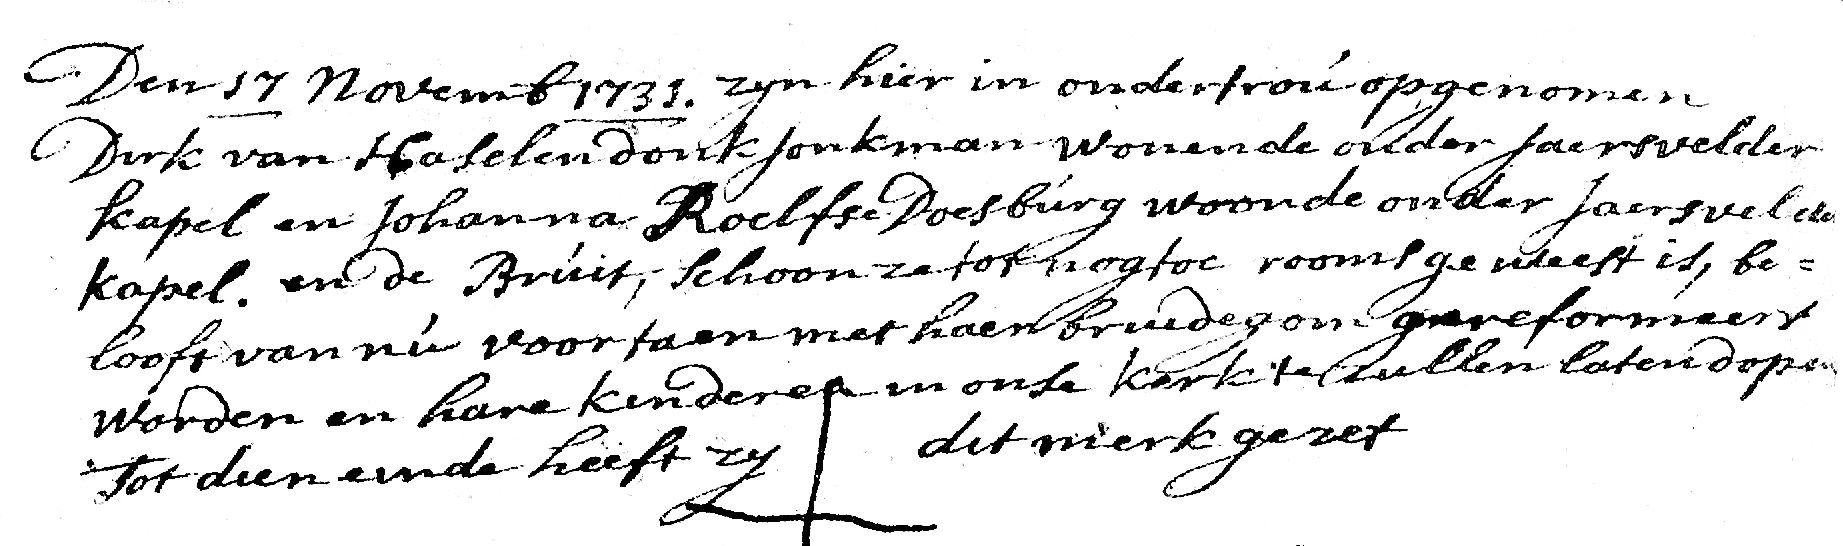 Den 17 Novemb 1731. zyn hier in ondertroú opgenomen
Dirk van Haselendonk Jonkman wonende onder Jaersvelder
kapel en Johanna Roelfse Doesbúrg woonde onder Jaersvelder
kapel. en de Brúit, schoon ze tot nog toe rooms geweest is, be=
looft van nú voortaen met haer bruidegom gereformeert
worden en hare kinderen in onse kerk te zullen laten dopen
Tot dien einde heeft zy dit merk gezet